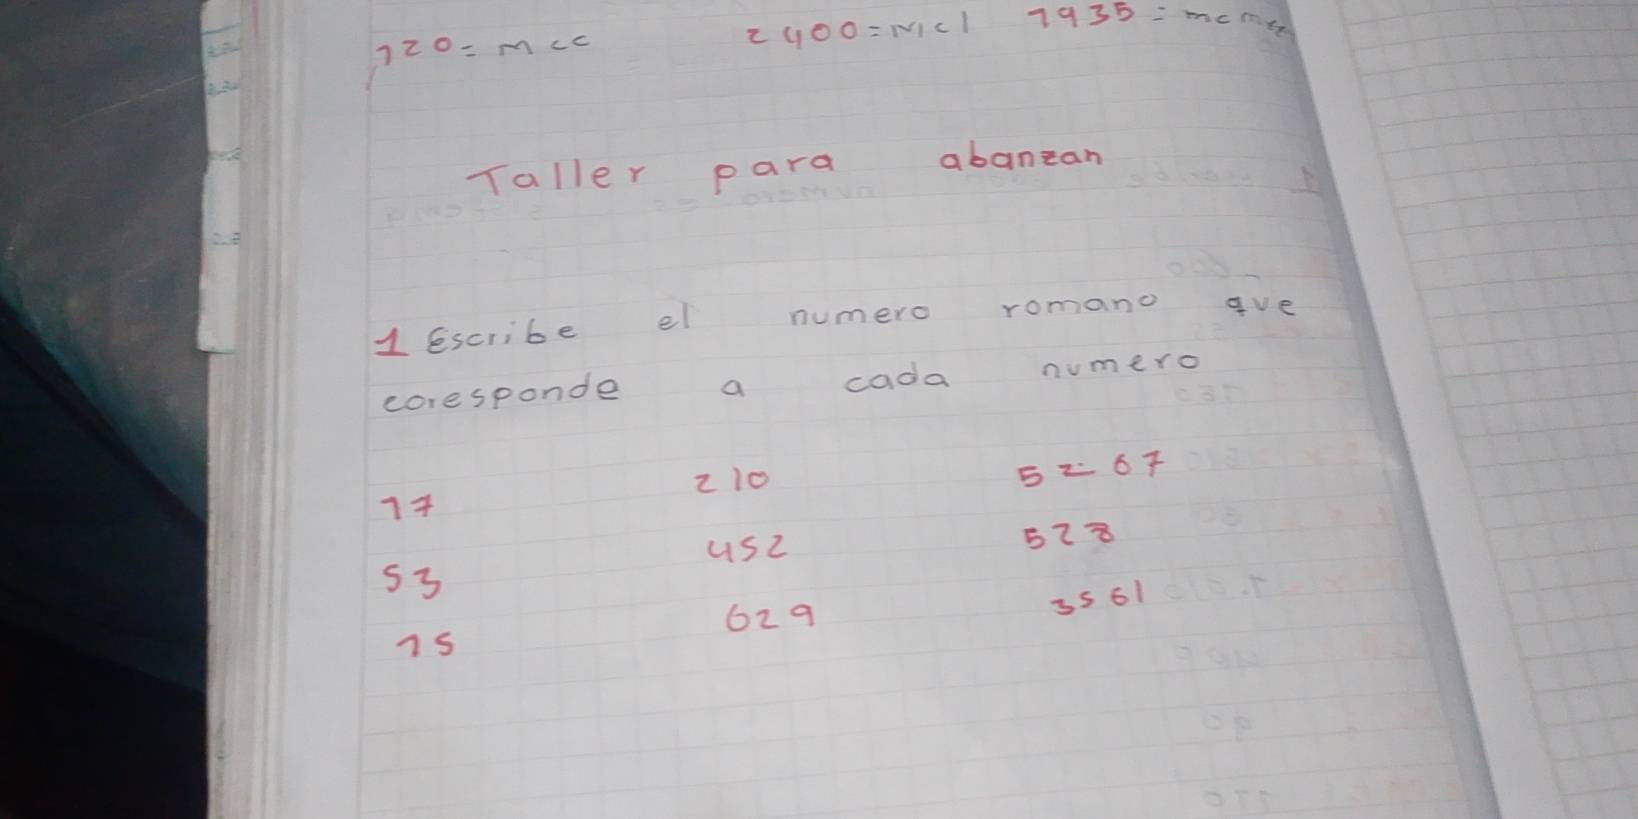 120 = mcc 2400 = MCl 1935 = mcm
Taller para abanzan
1 Escribe el numero romano que
coresponde a cada numero
17 210 5267
53 452 528
15 629 3561